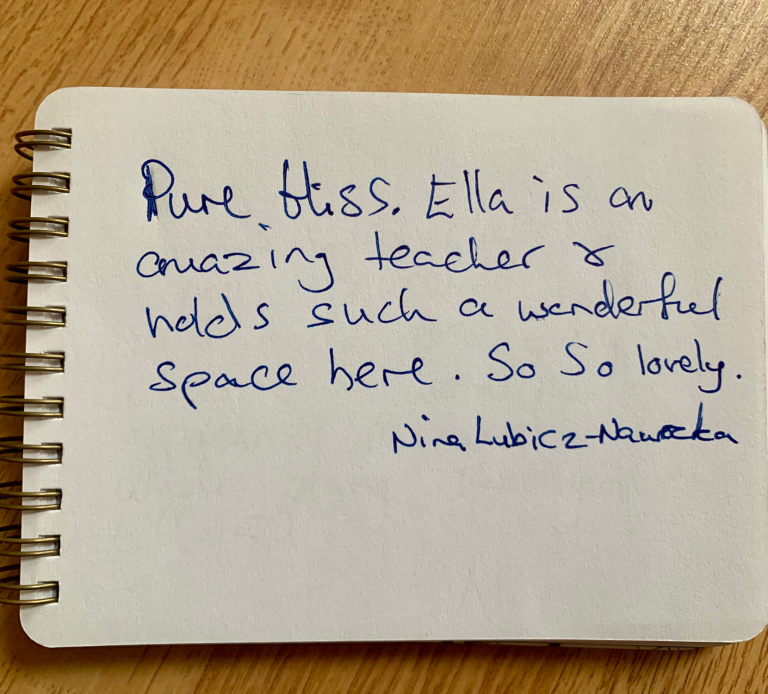 Pure bliss. Ella is an
amazing teacher &
holds such a wonderful
space here. So So lovely.
Nina Lubicz-Nawrocka